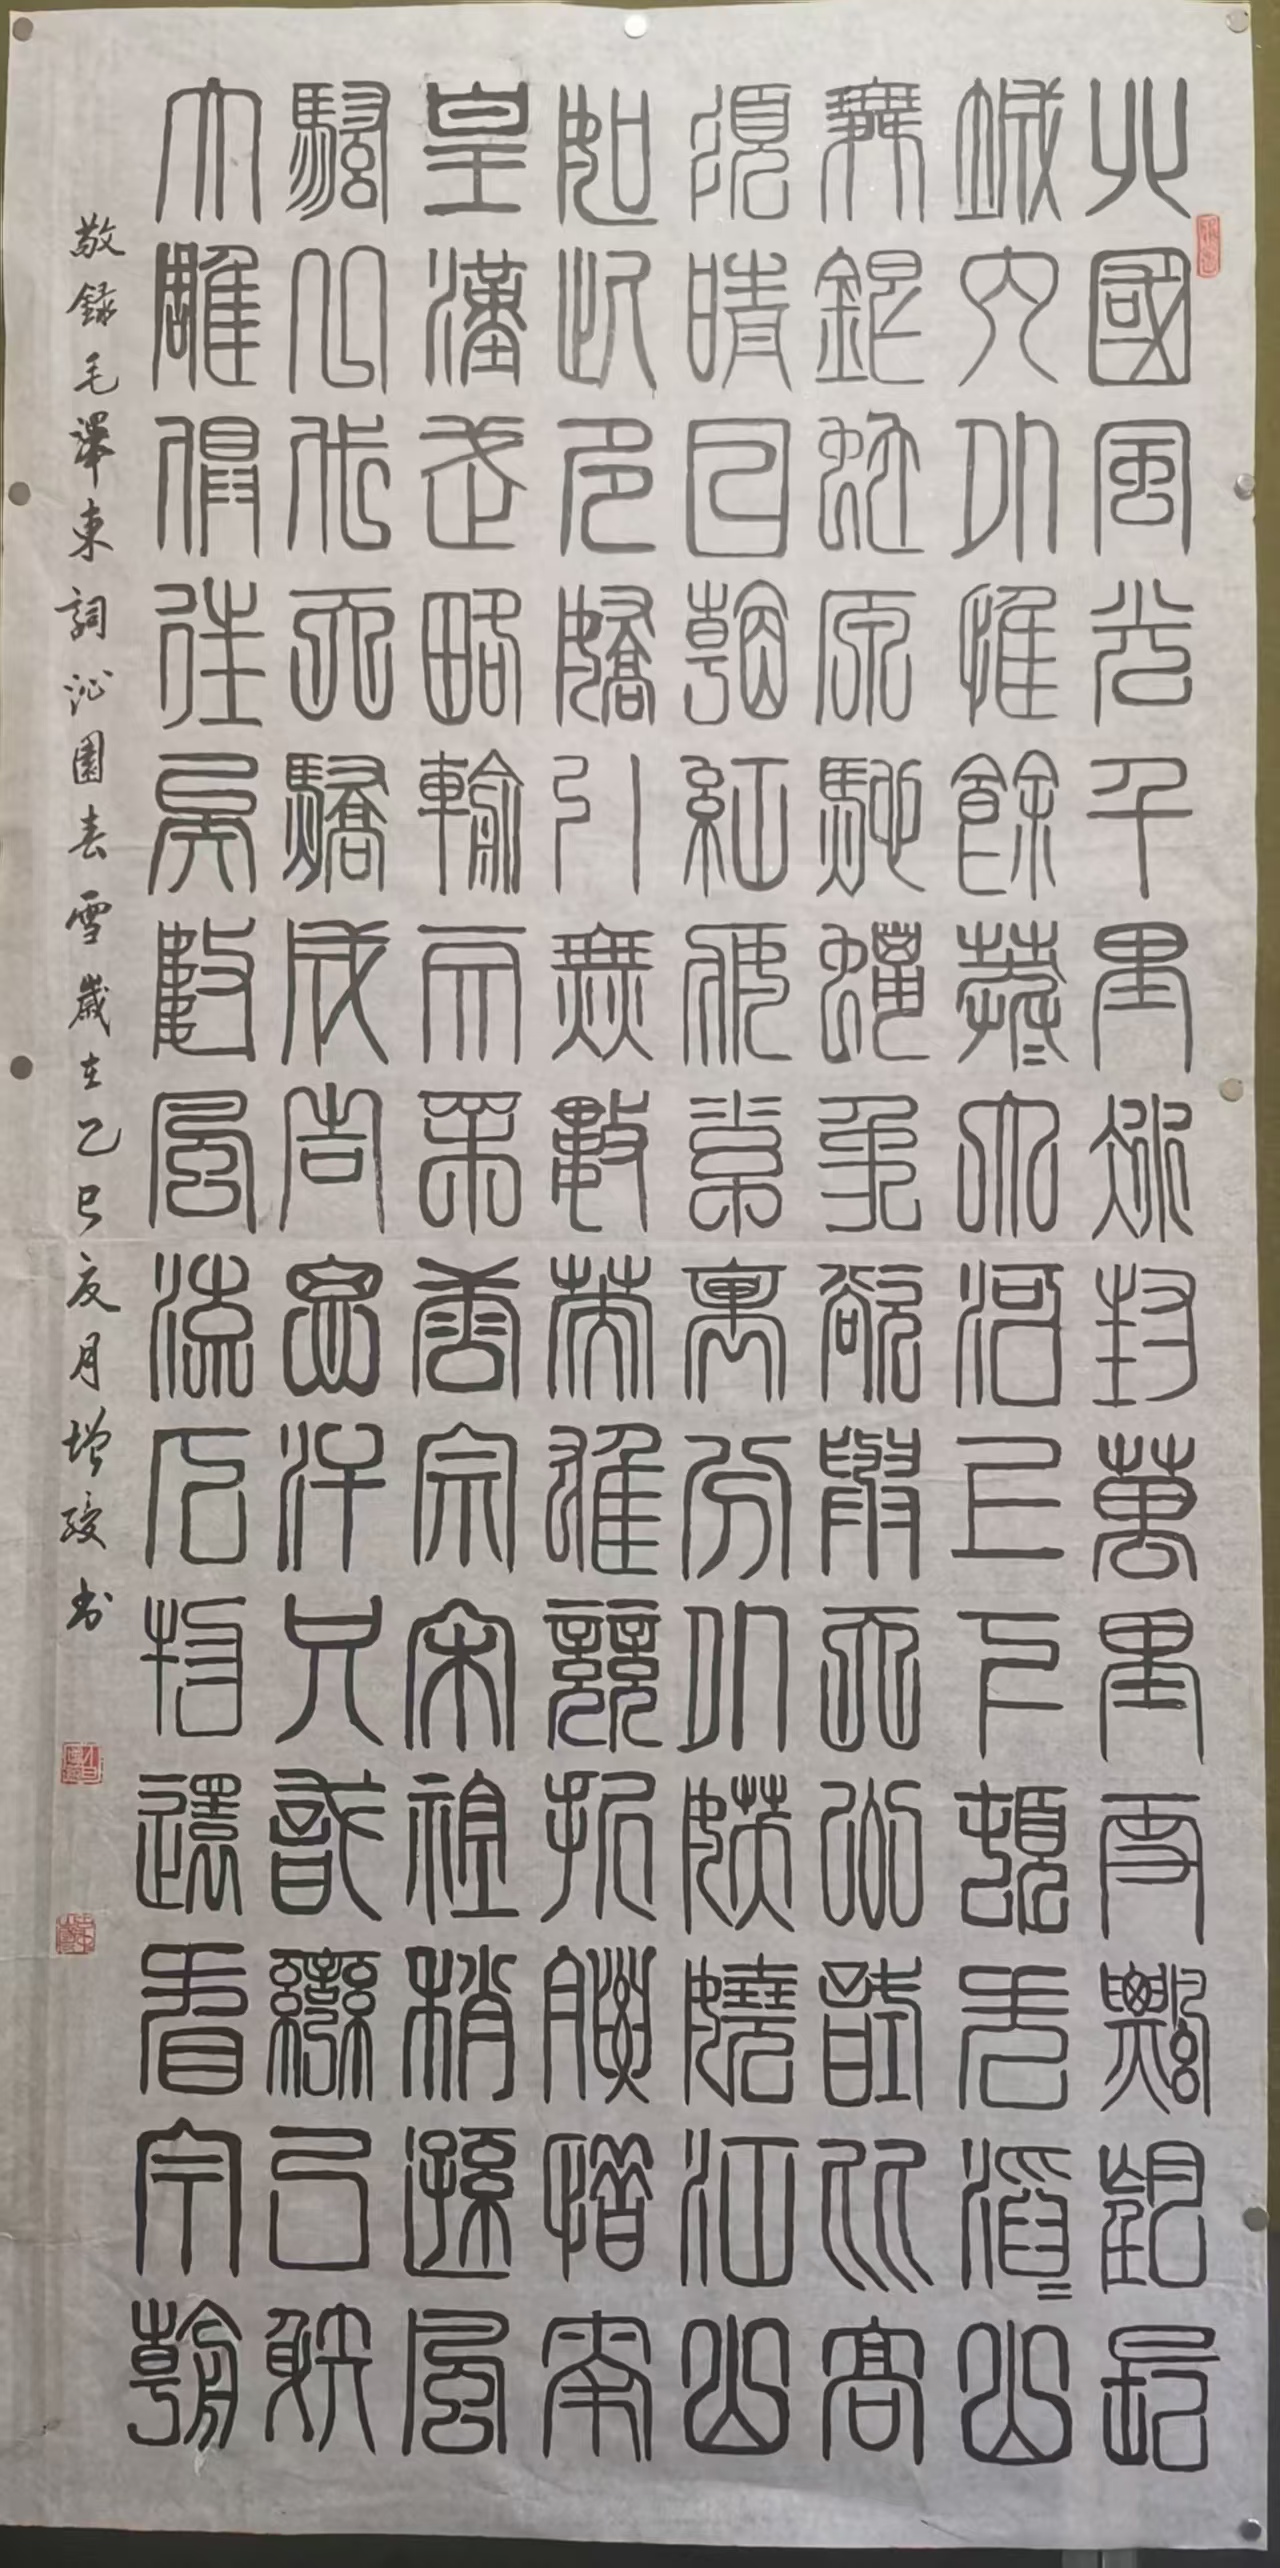 北國風光千里冰封萬里雪飄望長
城內外惟餘莽=大河上下頓失滔=山
舞銀蛇原馳蠟象欲與天公試比高
須晴日看紅裝素裹分外妖嬈江山
如此多嬌引無數英雄競折腰惜秦
皇漢武略輸文采唐宗宋祖稍遜風
騷一代天驕成吉思汗只識彎弓射
大雕俱往矣數風流人物還看今朝
敬録毛澤東詞沁園春雪歲在乙巳夏月增书